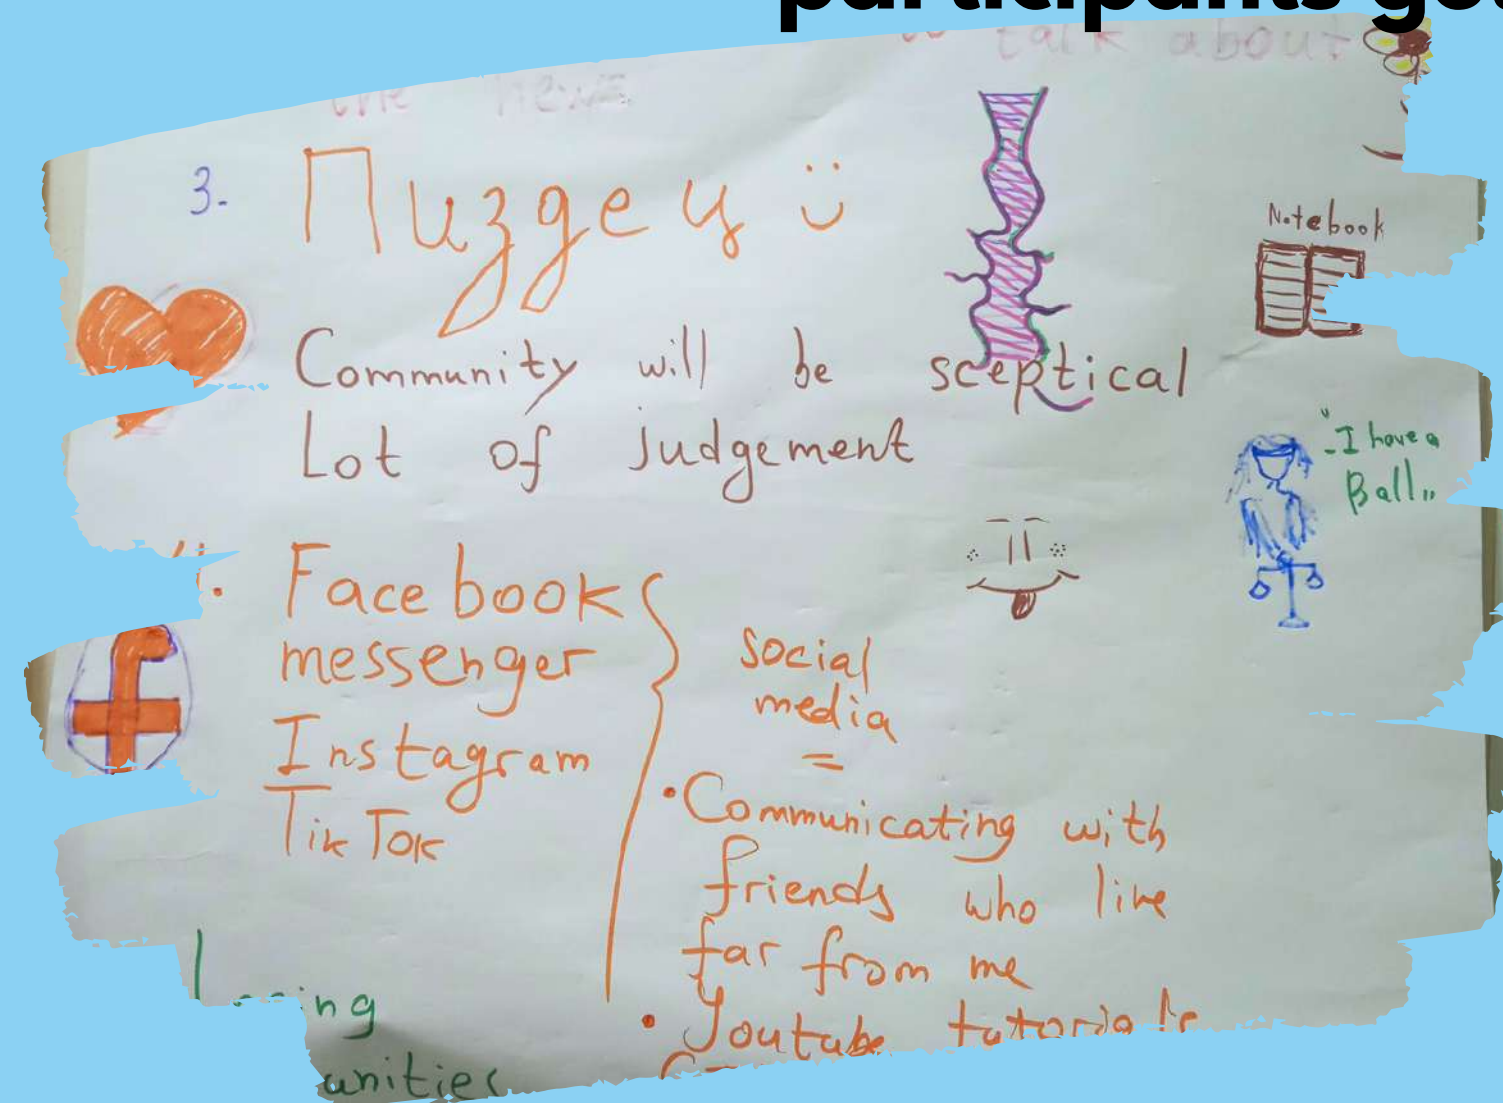 participants
talk about
the news
3. Пиздец
Notebook
Community will be sceptical
Lot of judgement
"-I have a
Ball"
Facebook
messenger
Instagram
TikTok
social
media
=
• Communicating with
friends who live
far from me
• Youtube tutorials